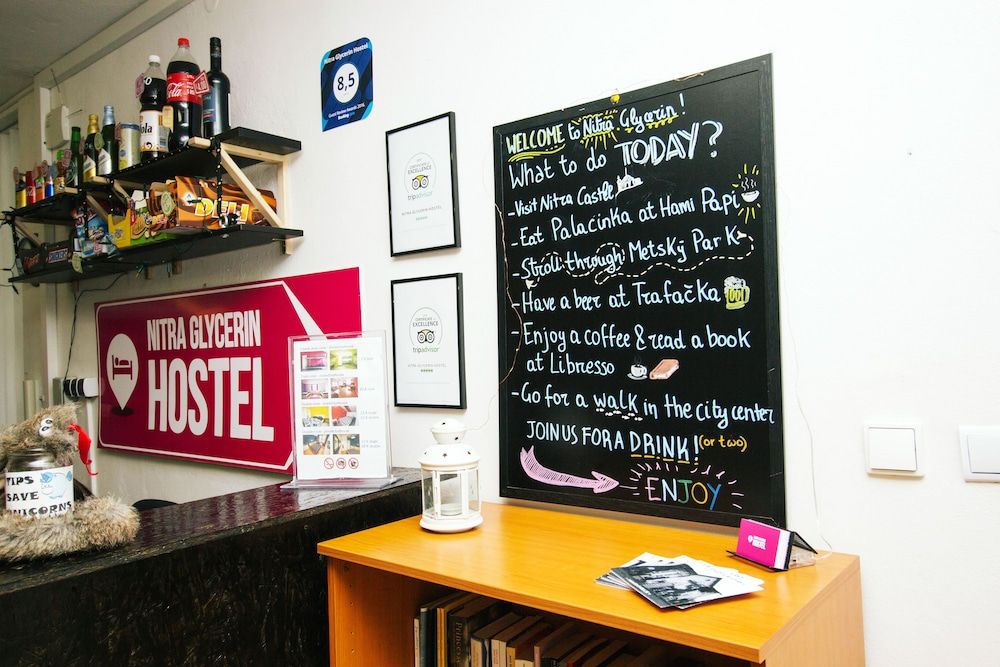 Nitra Glycerin Hostel
8,5
Guest Review Awards 2016
Booking.com
CERTIFICATE of EXCELLENCE
tripadvisor
NITRA GLYCERIN HOSTEL
CERTIFICATE of EXCELLENCE
tripadvisor
NITRA GLYCERIN HOSTEL
Kofola
Coca-Cola
DELI
NITRA GLYCERIN
HOSTEL
TIPS
SAVE
UNICORNS
WELCOME to Nitra Glycerin!
What to do TODAY?
-Visit Nitra Castle
-Eat Palacinka at Hami Papi
-Stroll through Metský Park
-Have a beer at Trafačka
-Enjoy a coffee & read a book
at Libresso
-Go for a walk in the city center
JOIN US FOR A DRINK! (or two)
ENJOY
HOSTEL